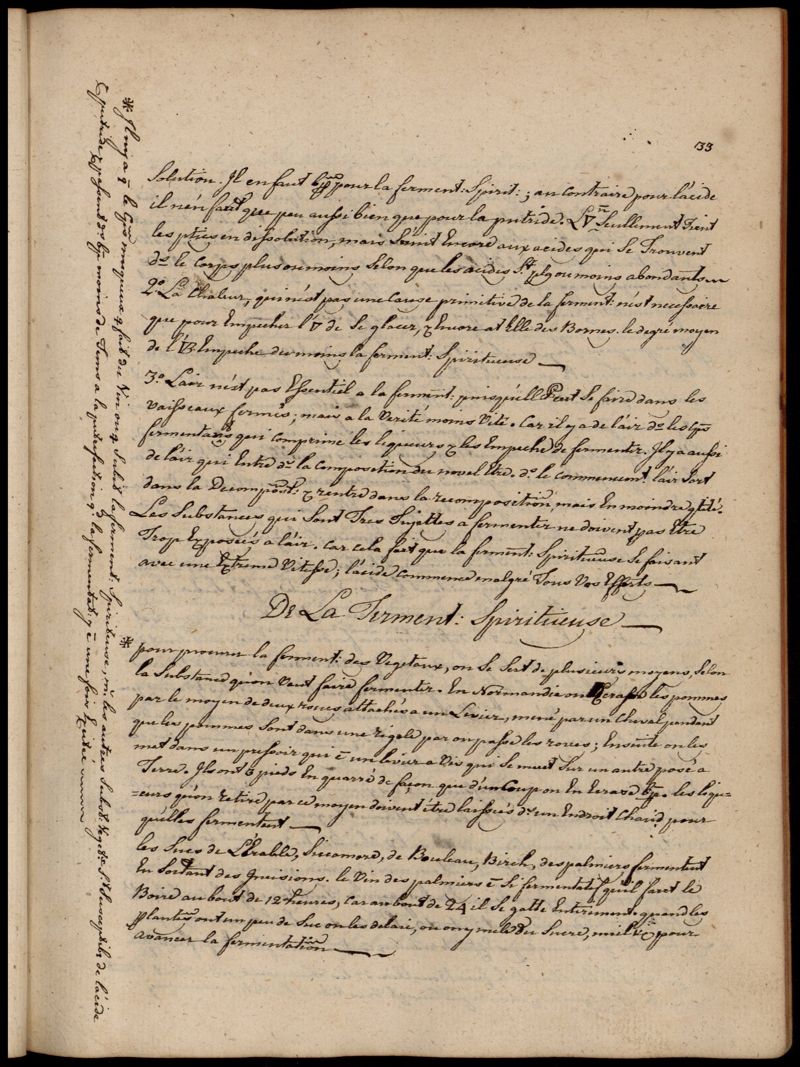 33
Solution. Il en faut bp pour la ferment: Spirit: ; au contraire pour l'acide
il n'en faut que peu aussi bien que pour la putride. L'▽ Seullement Tient
les pties en dissolution, mais S'unit Encore aux acides qui Se Trouvent
ds le Corps plus ou moins Selon que les acides St plus ou moins abondants
2.º La Chaleur, qui n'est pas une Cause primitive de la ferment: n'est necessaire
que pour Empecher l'▽ de Se glacer, & Encore a t Elle des Bornes. le degré moyen
de l' Empeche du moins la ferment: Spiritueuse
3.º L'air n'est pas Essentiel a la ferment: puisqu'ell Peut Se faire dans les
Vaisseaux fermés; mais a la Verité moins Vite. Car il y a de l'air ds les Cps
fermentans qui comprime les liqueurs & les Empeche de fermenter. Il y a aussi
de l'air qui Entre ds la composition du novel Etre. ds le commencemt l'air Sort
dans la Decomposit: & rentre dans la recomposition, mais En moindre qtité.
Les Substances qui Sont Tres Sujettes a fermenter ne doivent pas Etre
Trop Exposées a l'air. Car cela fait que la ferment: Spiritueuse Se faisant
avec une Extreme Vitesse; l'acide commence malgré Tous Vos Efforts
De La Ferment: Spiritueuse
* pour procurer la ferment: des Vegetaux, on Se Sert de plusieurs moyens, Selon
la Substance qu'on Veut faire fermenter. En Normandie on Ecrase les pommes
par le moyen de deux roues attachés a un Levier, mené par un Cheval pendant
que les pommes Sont dans une rigole par ou passe les roues; Ensuite on les
met dans un pressoir qui ē un levier a Vis qui Se meut Sur un autre posé a
Terre. Ils ont 6 pieds En quarré de façon que d'un Coup on En ecrase bp. les liqu=
=eurs qu'on retire par ce moyen doivent être laissées ds un Endroit Chaud pour
qu'elles fermentent
les Sucs de L'Erable, Sicamore, de Bouleau, Birch, des palmiers fermentent
En Sortant des Incisions. le Vin des palmiers ē Si fermentatif qu'il faut le
Boire au bout de 12 heures, Car au bout de 24 il Se gatte Entierement. quand les
plantes ont un peu de Suc on les delaie, ou on y mele du Sucre, miel &c pour
avancer la fermentation
* Il n'y a q le Cps muqueux q fait du Vin ou q Subit la ferment: Spiritueuse, m les autres Subst: Veget: St Susceptibles de l'acide
& putride, & passent ds bp moins de Tems a la putrefaction q la fermentat: